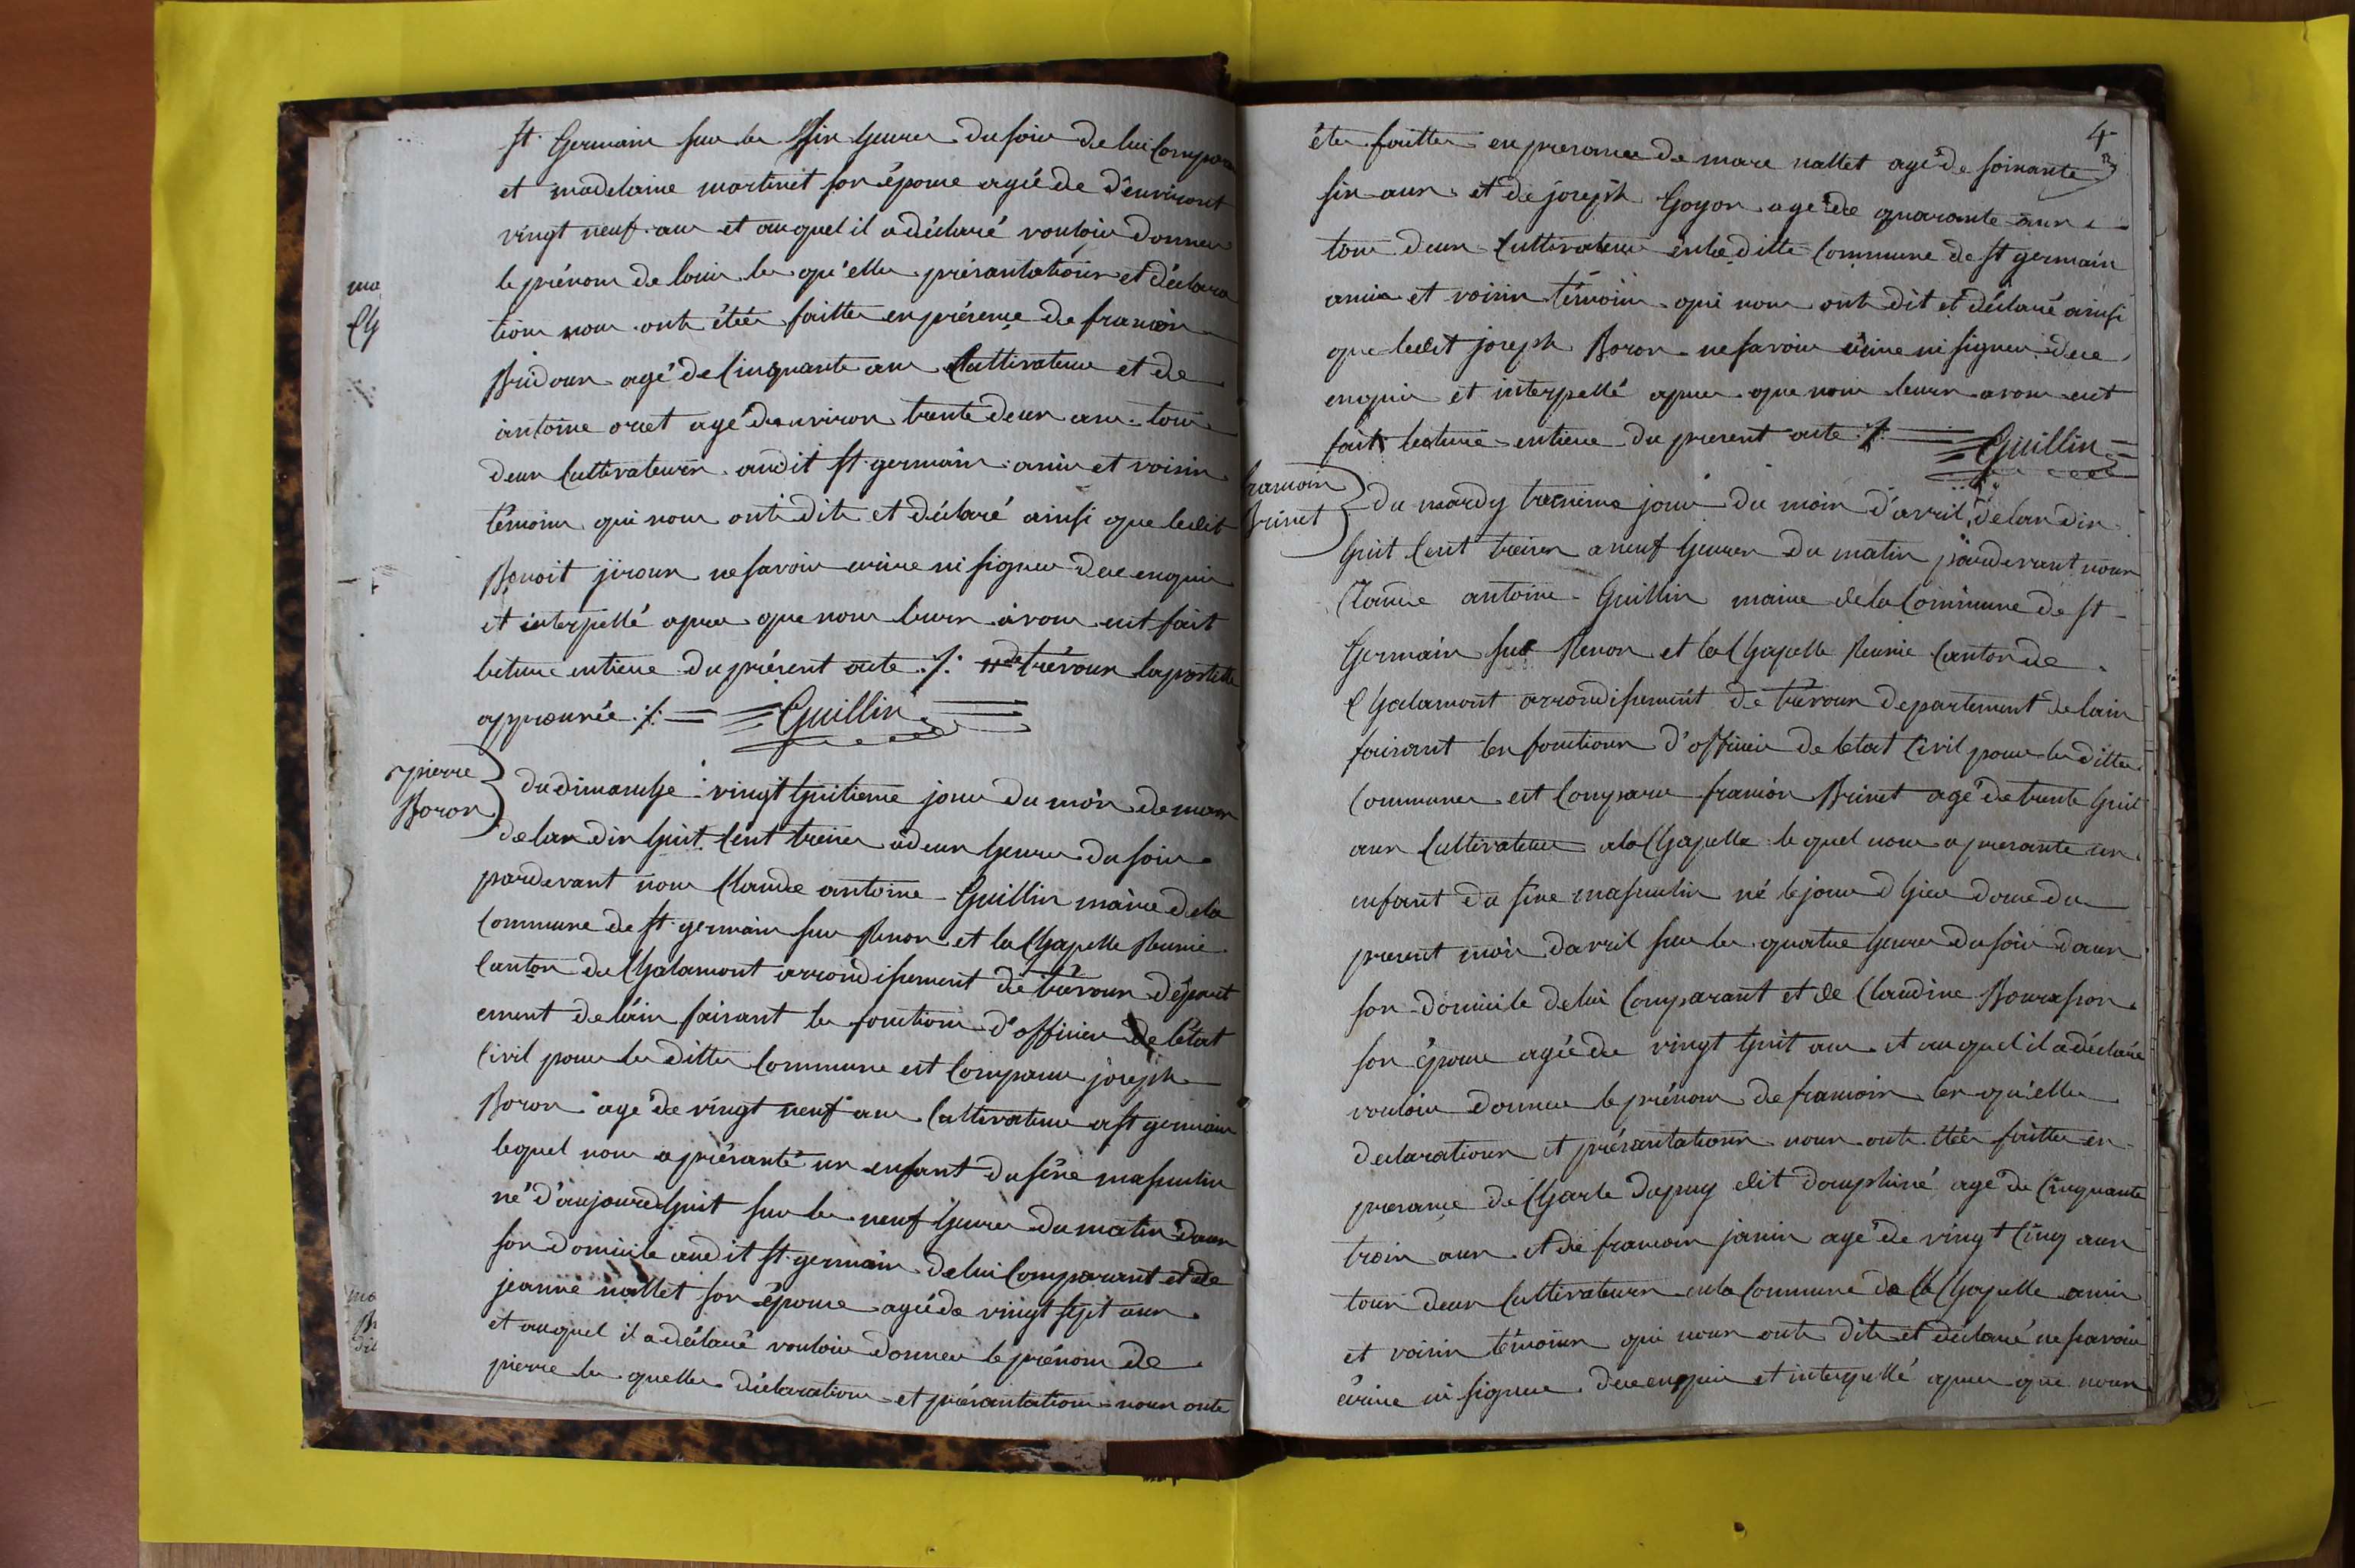 St. Germain sur les six heures du soir de lui compara
et madelaine martinet son épouse agée de d'environt
vingt neuf ans et auquel il a déclaré vouloir donner
le prénom de louis les qu'elles présantations et déclara
tions nous ont étées faittes en présence de françois
Bridoux agé de cinquante ans cultivateur et de
antoine oriet agé denviron trente deux ans tous
deux cultivateurs audit St. germain amis et voisin
témoins qui nous ont dit et déclaré ainsi que ledit
Benoit jiroux ne savoir ecrire ni signer dece enquis
et interpellé apres que nous leurs avons eut fait
lecture entiere du présent acte ./. de trévoux la postille
approuvée ./. Guillin
pierre
Boron
du dimanche vingt huitieme jour du mois de mars
de lan dix huit cent treize a deux heures du soir
pardevant nous Claude antoine Guillin maire dela
Commune de St. germain sur Renon et la Chapelle Reunie
Canton de Chalamont arrondisement de trévoux départ
ement de lain faisant les fonctions d'officier de letat
Civil pour les dittes Commune est Comparu joseph
Boron agé de vingt neuf ans Cultivateur a St germain
lequel nous a présanté un enfant du séxe masculin
né d'aujourdhuit sur les neuf heures du matin dans
son domicile audit St. germain de lui Comparant et de
jeanne nallet son épouse agée de vingt sept ans
et auquel il a déclaré vouloir donner le prénom de
pierre les quelles déclarations et présantations nous onte
4
éte faittes en presance de marc nallet agé de soixante
six ans et de joseph Goyon agé de quarante ans
tous deux Cultivateur en la ditte Commune de St germain
amis et voisin témoins qui nous ont dit et déclaré ainsi
que ledit joseph Boron ne savoir écrire ni signer dece
enquis et interpellé apres que nous leurs avons eut
fait lecture entiere du present acte ./. Guillin
francois
Brinet
du mardy treizieme jour du mois d'avril de lan dix
huit Cent treize a neuf heures du matin pardevant nous
Claude antoine Guillin maire de la Commune de St
Germain sur Renon et la Chapelle Reunie Canton de
Chalamont arrondisement de trévoux departement de lain
faisant les fonctions d'officier de letat Civil pour les dittes
Communes est Comparu francois Brinet agé de trente huit
ans Cultivateur a la Chapelle le quel nous a presante un
enfant du séxe masculin né le jour d'hier douze du
present mois davril sur les quatre heures du soir dans
son domicile de lui Comparant et de Claudine Bourasson
son épouse agée de vingt huit ans et auquel il a déclaré
vouloir donner le prénom de francois les qu'elles
declarations et présantations nous ont étées faittes en
presance de Charle dupuy dit dauphiné agé de Cinquante
trois ans et de francois janin agé de vingt Cinq ans
tous deux Cultivateurs en la Commune de la Chapelle amis
et voisin témoins qui nous ont dit et déclaré ne savoir
écrire ni signer dece enquis et interpellé apres que nous